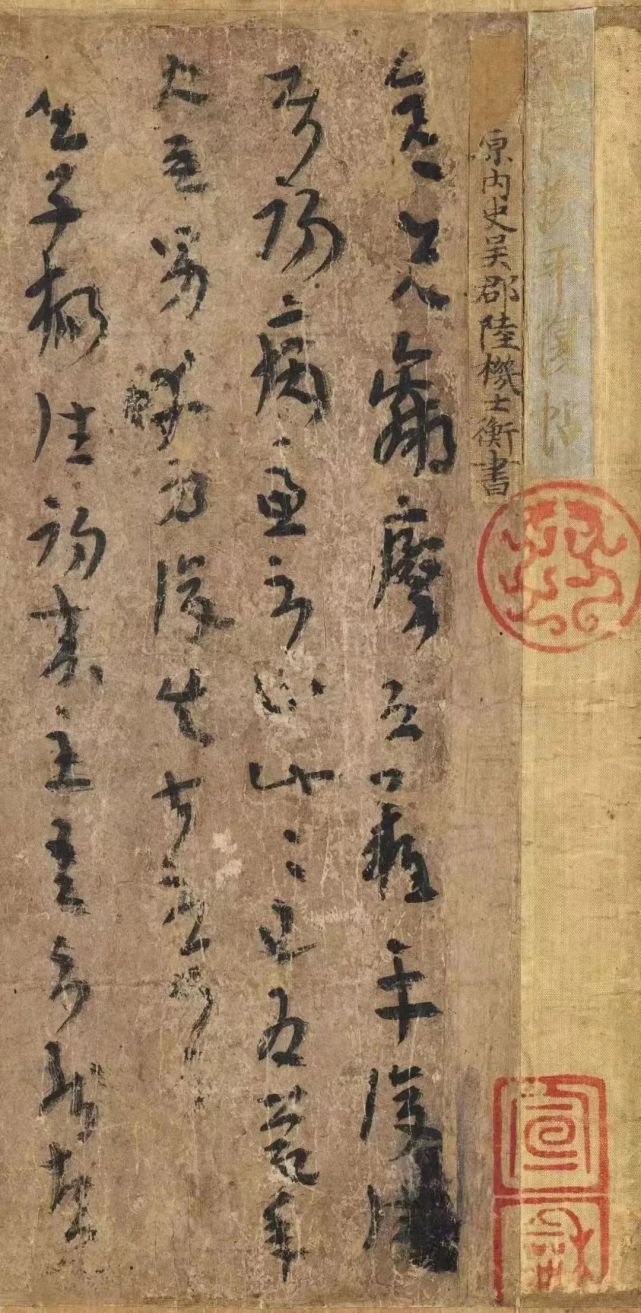 晉陸機平復帖
原內史吳郡陸機士衡書
彦先羸瘵恐難平復往
屬初病慮不止此〻已為慶承
使唯男幸為復失前憂耳
吳子楊往初來主吾不能盡